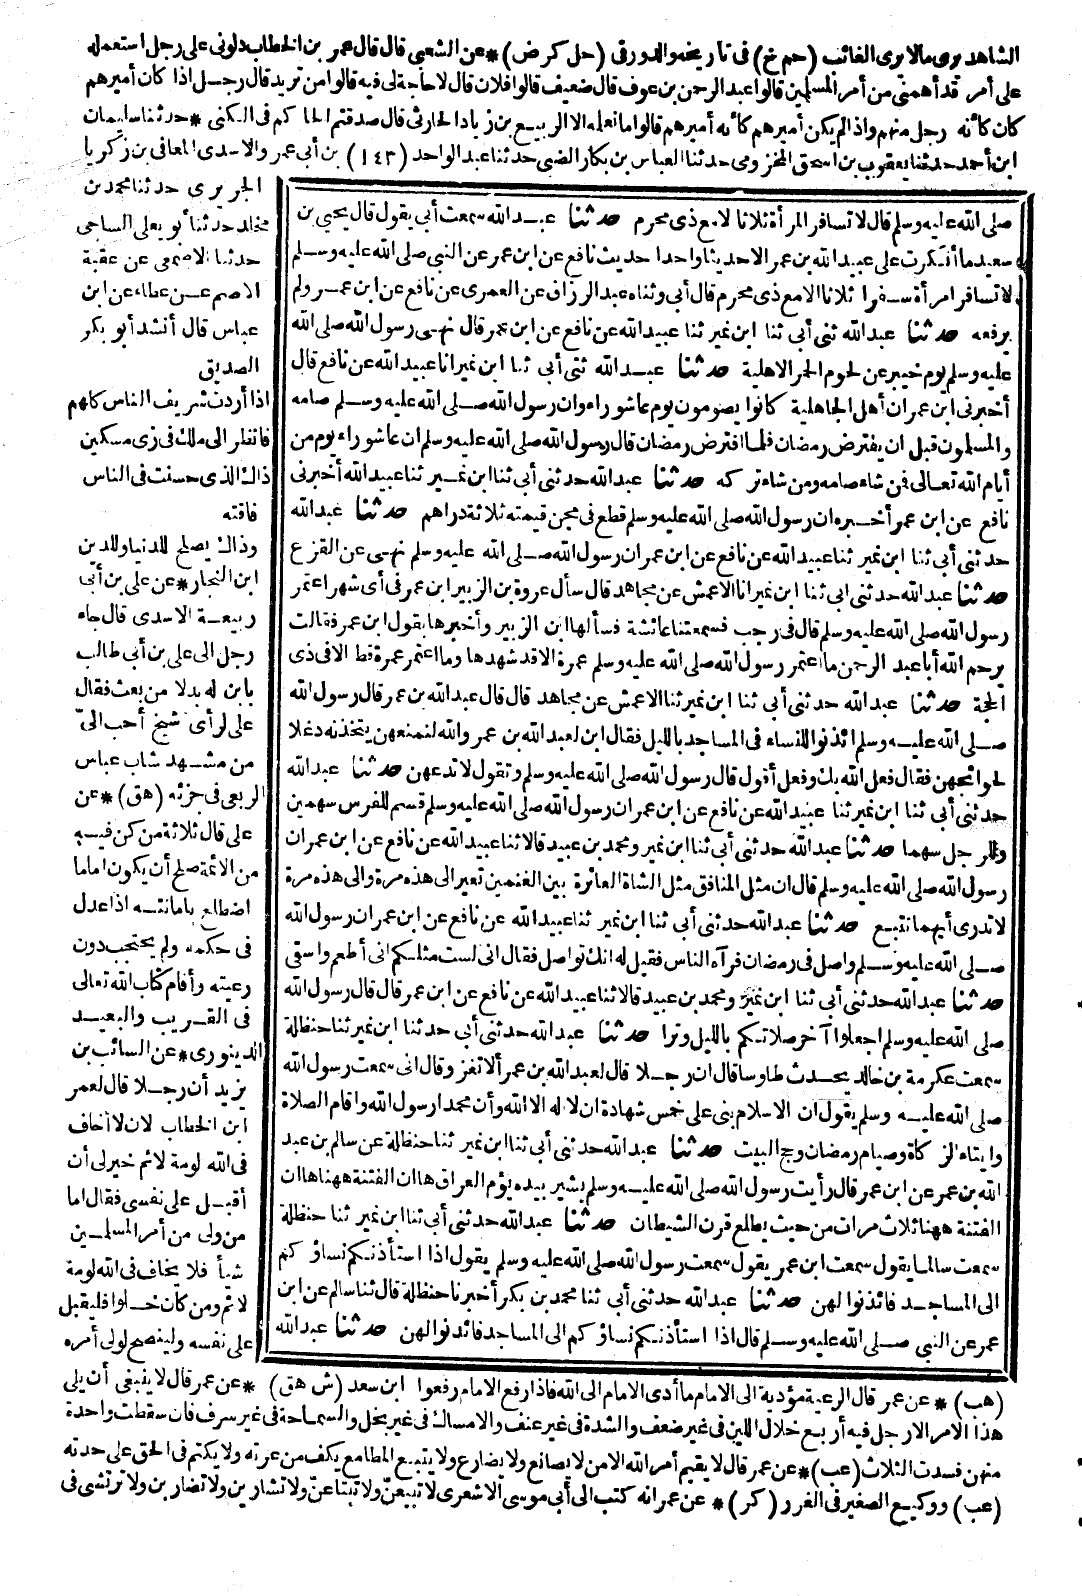 الشاهد يرى مالا يرى الغائب (حم خ) فى تاريخه والدورقى (حل كر ض) * عن الشعبى قال قال عمر بن الخطاب دلونى على رجل استعمله
على أمر قد أهمنى من أمر المسلمين قالوا عبد الرحمن بن عوف قال ضعيف قالوا فلان قال لا حاجة لى فيه قالوا من تريد قال رجل اذا كان أميرهم
كان كأنه رجل منهم واذا لم يكن أميرهم كأنه أميرهم قالوا ما نعلمه الا الربيع بن زياد الحارثى قال صدقتم الحاكم فى الكنى * حدثنا سليمان
ابن أحمد حدثنا يعقوب بن اسحق المخزومى حدثنا العباس بن بكار الضبى حدثنا عبد الواحد (١٤٣) بن أبى عمر والاسدى المعافى بن زكريا
الجريرى حدثنا محمد بن
مخلد حدثنا أبو يعلى الساجى
حدثنا الاصمعى عن عقبة
الاصم عن عطاء عن ابن
عباس قال أنشد أبو بكر
الصديق
اذا أردت شريف الناس كلهم
فانظر الى ملك فى زى مسكين
ذاك الذى حسنت فى الناس
فاقته
وذاك يصلح للدنيا وللدين
ابن النجار * عن على بن أبى
ربيعة الاسدى قال جاء
رجل الى على بن أبى طالب
بابن له بدلا من بعث فقال
على لرأى شيخ أحب الىّ
من مشهد شاب عباس
الربعى فى جزئه (هق) * عن
على قال ثلاثة من كن فيه
من الائمة صلح أن يكون اماما
اضطلع بامانته اذا عدل
فى حكمه ولم يحتجب دون
رعيته وأقام كتاب الله تعالى
فى القريب والبعيد
الدينورى * عن السائب بن
يزيد أن رجلا قال لعمر
ابن الخطاب لان لا أخاف
فى الله لومة لائم خير لى أن
أقبل على نفسى فقال اما
من ولى من أمر المسلمين
شيأ فلا يخاف فى الله لومة
لائم ومن كان خلوا فليقبل
على نفسه ولينصح لولى أمره
صلى الله عليه وسلم قال لا تسافر المرأة ثلاثا الا مع ذى محرم حدثنا عبد الله سمعت أبى يقول قال يحيى بن
سعيد ما أنكرت على عبيد الله بن عمر الا حديثا واحدا حديث نافع عن ابن عمر عن النبى صلى الله عليه وسلم
لا تسافر امرأة سفرا ثلاثا الا مع ذى محرم قال أبى وثناه عبد الرزاق عن العمرى عن نافع عن ابن عمر ولم
يرفعه حدثنا عبد الله ثنى أبى ثنا ابن نمير ثنا عبيد الله عن نافع عن ابن عمر قال نهى رسول الله صلى الله
عليه وسلم يوم خيبر عن لحوم الحمر الاهلية حدثنا عبد الله ثنى أبى ثنا ابن نمير انا عبيد الله عن نافع قال
أخبرنى ابن عمر ان أهل الجاهلية كانوا يصومون يوم عاشوراء وان رسول الله صلى الله عليه وسلم صامه
والمسلمون قبل ان يفترض رمضان فلما افترض رمضان قال رسول الله صلى الله عليه وسلم ان عاشوراء يوم من
أيام الله تعالى فمن شاء صامه ومن شاء تركه حدثنا عبد الله حدثنى أبى ثنا ابن نمير ثنا عبيد الله أخبرنى
نافع عن ابن عمر أخبره ان رسول الله صلى الله عليه وسلم قطع فى مجن قيمته ثلاثة دراهم حدثنا عبد الله
حدثنى أبى ثنا ابن نمير ثنا عبيد الله عن نافع عن ابن عمر ان رسول الله صلى الله عليه وسلم نهى عن القزع
حدثنا عبد الله حدثنى أبى ثنا ابن نمير انا الاعمش عن مجاهد قال سأل عروة بن الزبير ابن عمر فى أى شهر اعتمر
رسول الله صلى الله عليه وسلم قال فى رجب فسمعتنا عائشة فسألها ابن الزبير وأخبرها بقول ابن عمر فقالت
يرحم الله أبا عبد الرحمن ما اعتمر رسول الله صلى الله عليه وسلم عمرة الا قد شهدها وما اعتمر عمرة قط الا فى ذى
الحجة حدثنا عبد الله حدثنى أبى ثنا ابن نمير ثنا الاعمش عن مجاهد قال قال عبد الله بن عمر قال رسول الله
صلى الله عليه وسلم ائذنوا للنساء فى المساجد بالليل فقال ابن لعبد الله بن عمر والله لنمنعهن يتخذنه دغلا
لحوائجهن فقال فعل الله بك وفعل أقول قال رسول الله صلى الله عليه وسلم وتقول لا ندعهن حدثنا عبد الله
حدثنى أبى ثنا ابن نمير ثنا عبيد الله عن نافع عن ابن عمر ان رسول الله صلى الله عليه وسلم قسم للفرس سهمين
وللرجل سهما حدثنا عبد الله حدثنى أبى ثنا ابن نمير ومحمد بن عبيد قالا ثنا عبيد الله عن نافع عن ابن عمر ان
رسول الله صلى الله عليه وسلم قال ان مثل المنافق مثل الشاة العائرة بين الغنمين تعير الى هذه مرة والى هذه مرة
لا تدرى أيهما تتبع حدثنا عبد الله حدثنى أبى ثنا ابن نمير ثنا عبيد الله عن نافع عن ابن عمر ان رسول الله
صلى الله عليه وسلم واصل فى رمضان فرآه الناس فقيل له انك تواصل فقال انى لست مثلكم انى أطعم واسقى
حدثنا عبد الله حدثنى أبى ثنا ابن نمير ومحمد بن عبيد قالا ثنا عبيد الله عن نافع عن ابن عمر قال قال رسول الله
صلى الله عليه وسلم اجعلوا آخر صلاتكم بالليل وترا حدثنا عبد الله حدثنى أبى حدثنا ابن نمير ثنا حنظلة
سمعت عكرمة بن خالد يحدث طاوسا قال ان رجلا قال لعبد الله بن عمر ألا تغزو قال انى سمعت رسول الله
صلى الله عليه وسلم يقول ان الاسلام بنى على خمس شهادة ان لا اله الا الله وأن محمدا رسول الله واقام الصلاة
وايتاء الزكاة وصيام رمضان وحج البيت حدثنا عبد الله حدثنى أبى ثنا ابن نمير ثنا حنظلة عن سالم بن عبد
الله بن عمر عن ابن عمر قال رأيت رسول الله صلى الله عليه وسلم يشير بيده يؤم العراق ها ان الفتنة ههنا ها ان
الفتنة ههنا ثلاث مرات من حيث يطلع قرن الشيطان حدثنا عبد الله حدثنى أبى ثنا ابن نمير ثنا حنظلة
سمعت سالما يقول سمعت ابن عمر يقول سمعت رسول الله صلى الله عليه وسلم يقول اذا استأذنكم نساؤكم
الى المساجد فائذنوا لهن حدثنا عبد الله حدثنى أبى ثنا محمد بن بكر أخبرنا حنظلة قال ثنا سالم عن ابن
عمر عن النبى صلى الله عليه وسلم قال اذا استأذنكم نساؤكم الى المساجد فائذنوا لهن حدثنا عبد الله
(هب) * عن عمر قال الرعية مؤدية الى الامام ما أدى الامام الى الله فاذا رفع الامام رفعوا ابن سعد (ش هق) * عن عمر قال لا ينبغى أن يلى
هذا الامر الا رجل فيه أربع خلال اللين فى غير ضعف والشدة فى غير عنف والامساك فى غير بخل والسماحة فى غير سرف فان سقطت واحدة
منهن فسدت الثلاث (عب) * عن عمر قال لا يقيم أمر الله الا من لا يصانع ولا يضارع ولا يتبع المطامع يكف من عزته ولا يكتم فى الحق على حدته
(عب) ووكيع الصغير فى الغرر (كر) * عن عمر انه كتب الى أبى موسى الاشعرى لا تبيعنّ ولا تبتاعنّ ولا تشارين ولا تضاربن ولا ترتشى فى